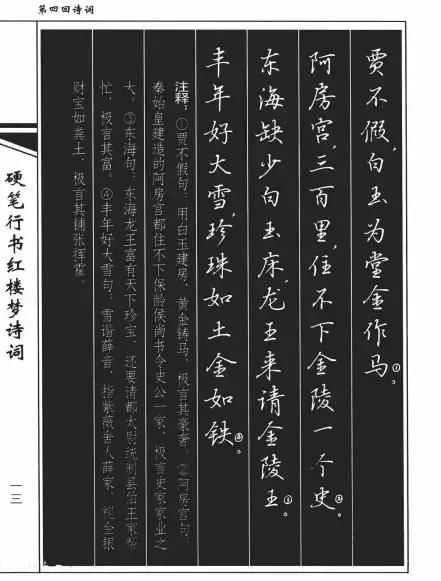 第四回诗词
贾不假,白玉为堂金作马①。
阿房宫,三百里,住不下金陵一个史②。
东海缺少白玉床,龙王来请金陵王③。
丰年好大雪,珍珠如土金如铁④。
注释:①贾不假句:用白玉建房,黄金铸马,极言其豪奢。②阿房宫句:
秦始皇建造的阿房宫都住不下保龄侯尚书令史公一家,极言史家家业之
大。③东海句:东海龙王富有天下珍宝,还要请都太尉统制县伯王家帮
忙,极言其富。④丰年好大雪句:雪谐薛音,指紫薇舍人薛家,视金银
财宝如粪土,极言其铺张挥霍。
硬笔行书红楼梦诗词
一三